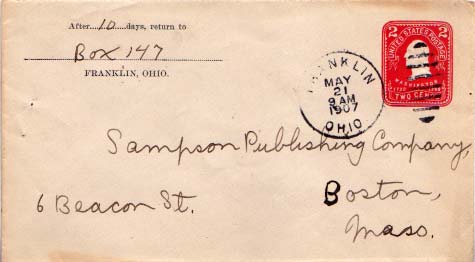 After 10 days, return to
Box 147
FRANKLIN, OHIO.
UNITED STATES POSTAGE
2 2
WASHINGTON
TWO CENTS
FRANKLIN
MAY
21
9 AM
1907
OHIO
Sampson Publishing Company,
6 Beacon St. Boston,
Mass.